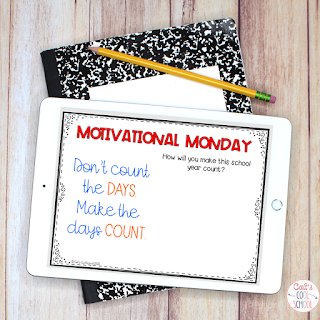 MOTIVATIONAL MONDAY
Don't count
the DAYS.
Make the
days COUNT.
How will you make this school
year count?
Cait's
COOL
SCHOOL